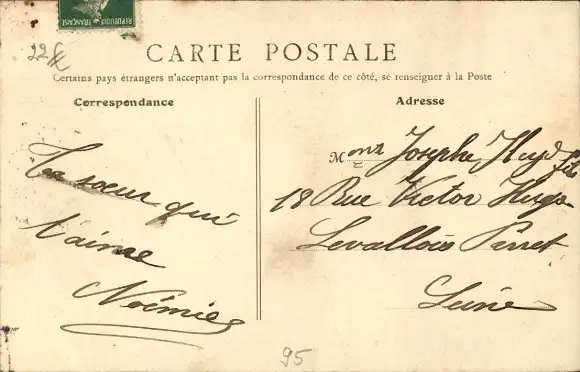 RÉPUBLIQUE FRANÇAISE
CARTE POSTALE
Certains pays étrangers n'acceptant pas la correspondance de ce côté, se renseigner à la Poste
Correspondance
Ta sœur qui
t'aime
Noémie
Adresse
Josephe
18 Rue Victor Hugo
Levallois Perret
Seine
95